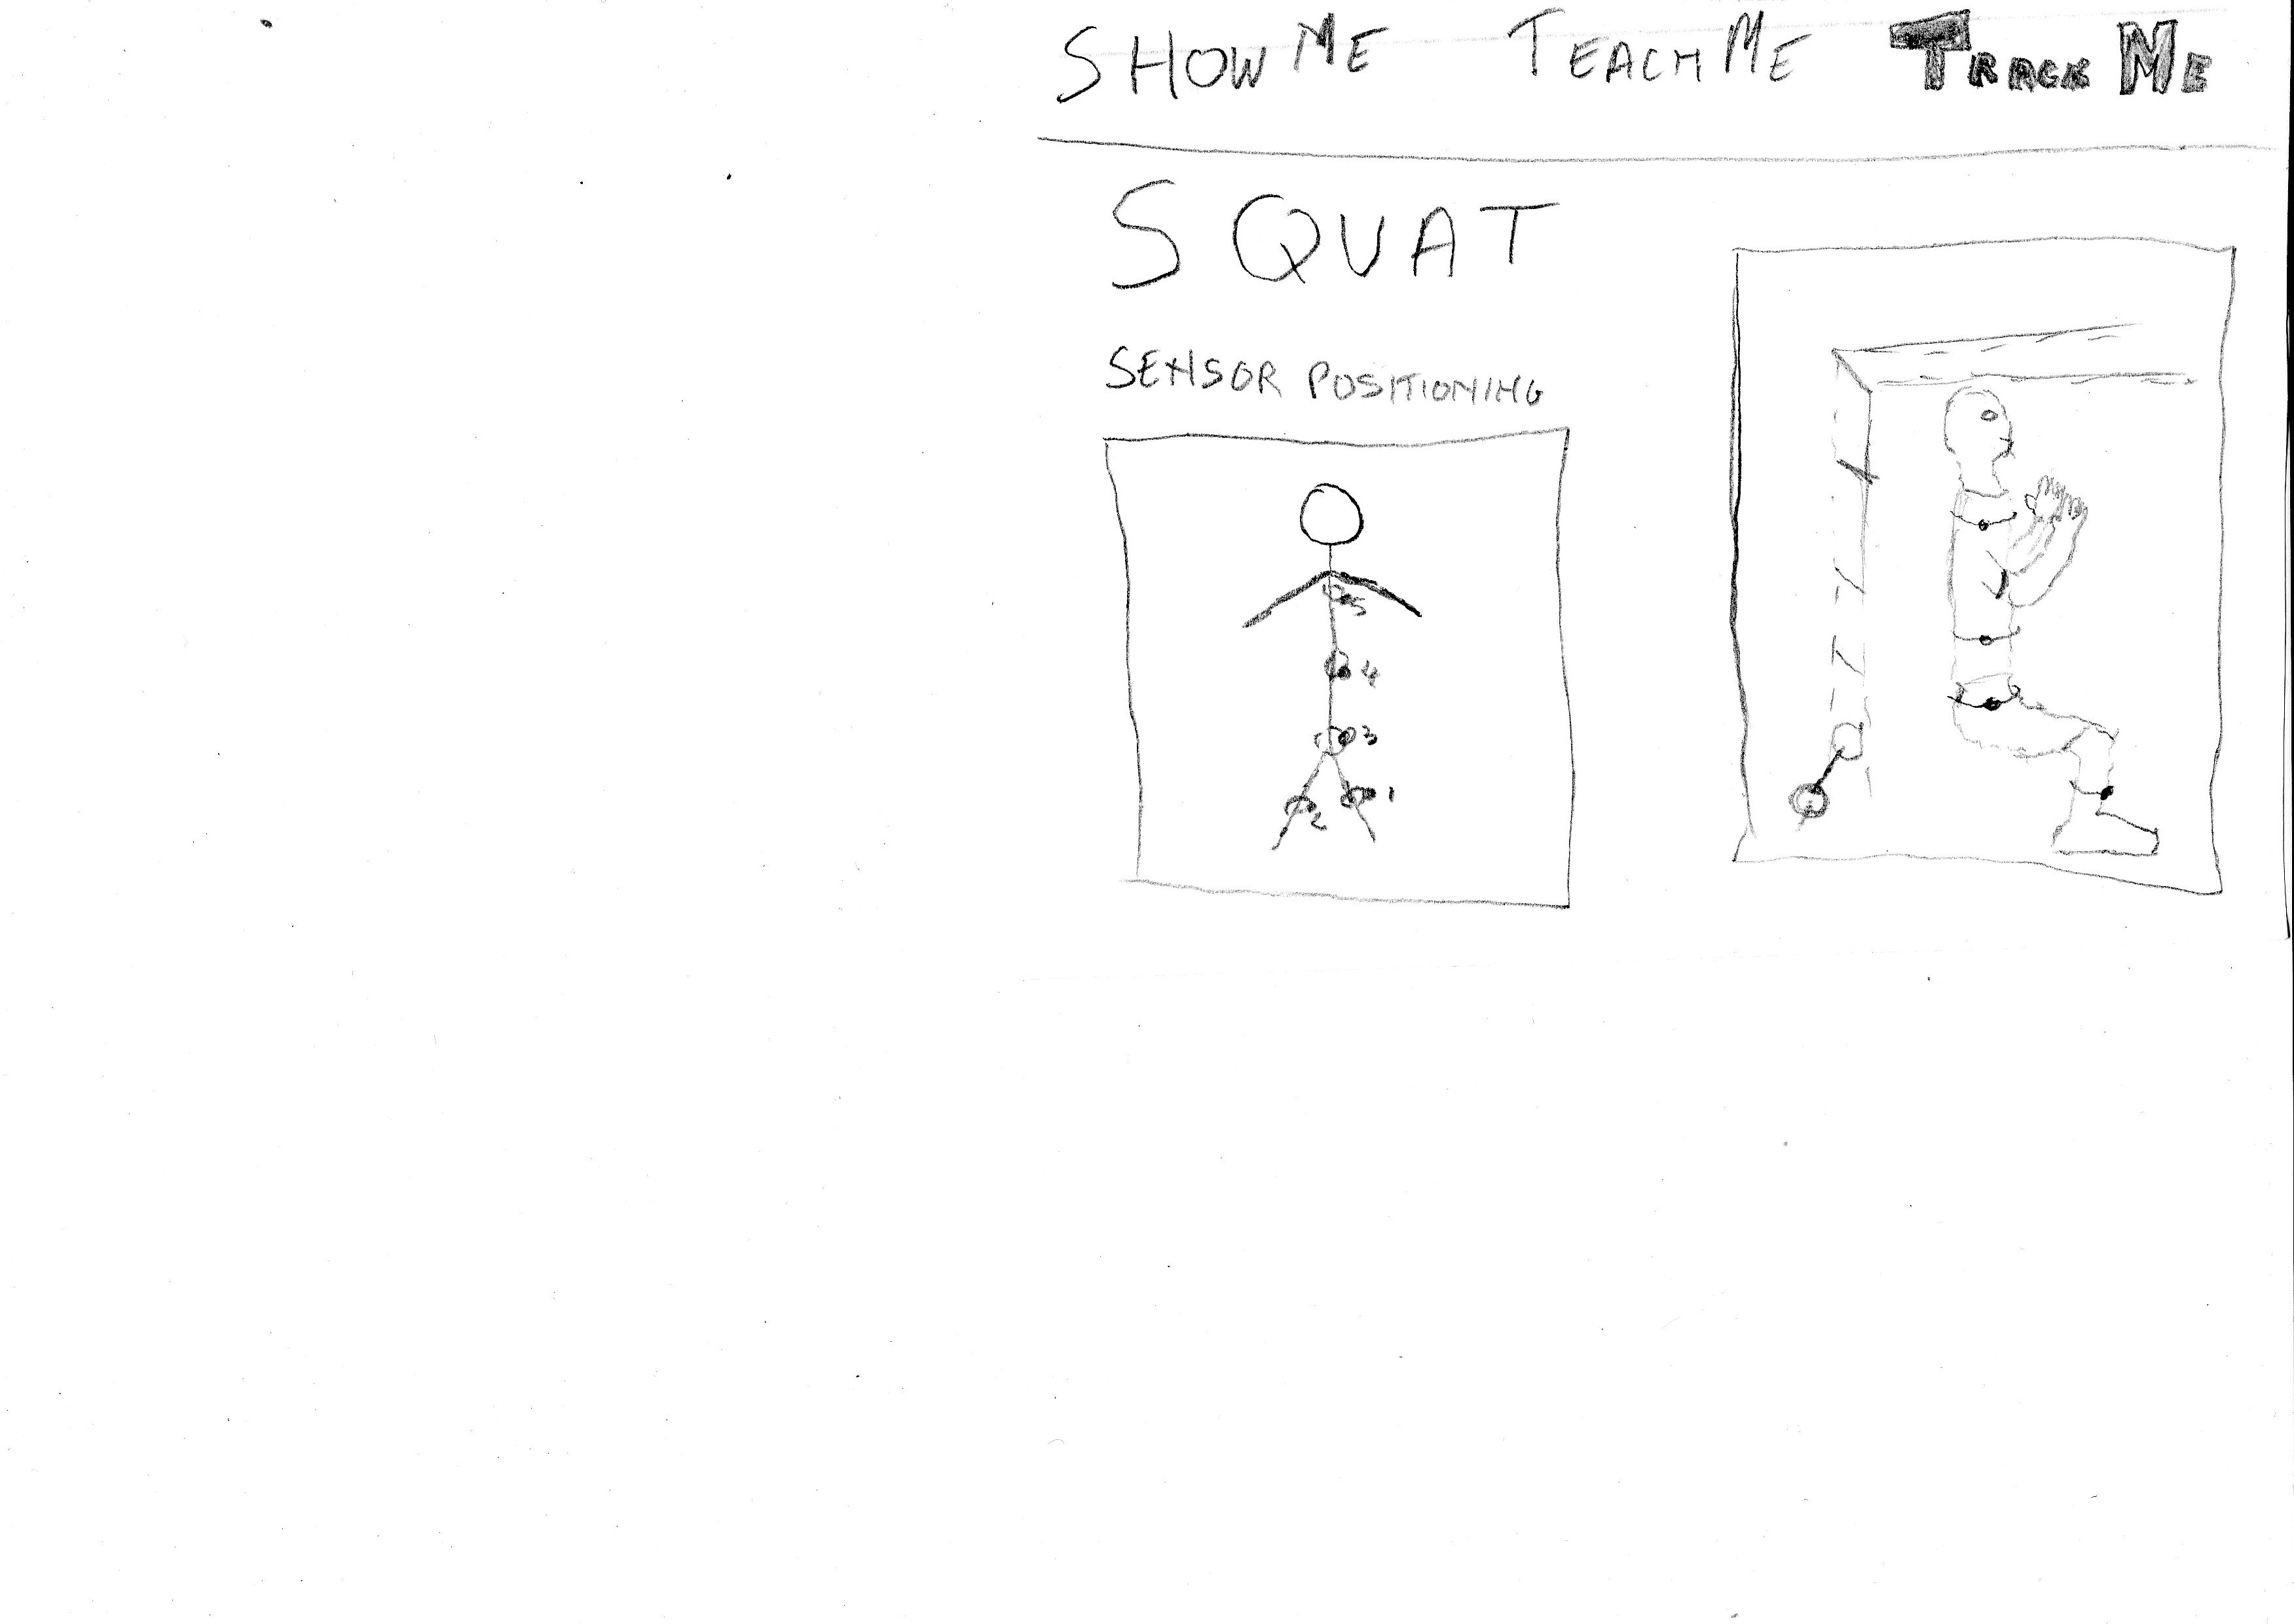 SHOW ME TEACH ME TRACK ME
SQUAT
SENSOR POSITIONING
5
4
3
1
2